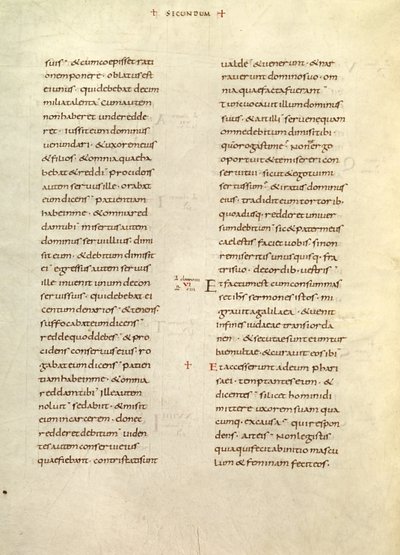 ✝ SECUNDUM ✝
suis · & cum coepisset rati
onem ponere · oblatus est
ei unus · qui debebat decem
milia talenta · cum autem
non haberet unde redde
ret · iussit eum dominus
uenundari · & uxorem eius
& filios · & omnia quae ha
bebat & reddi · procidens
autem seruus ille · orabat
eum dicens · patientiam
habe in me · & omnia red
dam tibi · misertus autem
dominus serui illius · dimi
sit eum · & debitum dimisit
ei · egressus autem seruus
ille inuenit unum de con
seruis suis · qui debebat ei
centum denarios · & tenens
suffocabat eum dicens ·
redde quod debes · & pro
cidens conseruus eius ro
gabat eum dicens · patien
tiam habe in me · & omnia
reddam tibi · ille autem
noluit · sed abiit · & misit
eum in carcerem · donec
redderet debitum · uiden
tes autem conserui eius
quae fiebant · contristati sunt
ualde · & uenerunt · & nar
rauerunt domino suo · om
nia quae facta fuerant ·
tunc uocauit illum dominus
suus · & ait illi · serue nequam
omne debitum dimisi tibi ·
quo rogasti me · non ergo
oportuit & te misereri con
serui tui · sicut & ego tui mi
sertus sum · & iratus dominus
eius · tradidit eum tortorib ·
quoadusq · redderet uniuer
sum debitum · sic & pater meus
caelestis faciet uobis si non
remiseritis unusquisq · fra
tri suo · de cordib · uestris ·
Et factum est cum consummas
set ihs sermones istos · mi
grauit a galilaea · & uenit
in fines iudaeae trans iorda
nen · & secutae sunt eum tur
bae multae · & curauit eos ibi ·
Et accesserunt ad eum phari
saei · temptantes eum · &
dicentes · si licet homini di
mittere uxorem suam qua
cumq · ex causa · qui respon
dens · ait eis · non legistis
quia qui fecit ab initio mascu
lum & feminam fecit eos ·